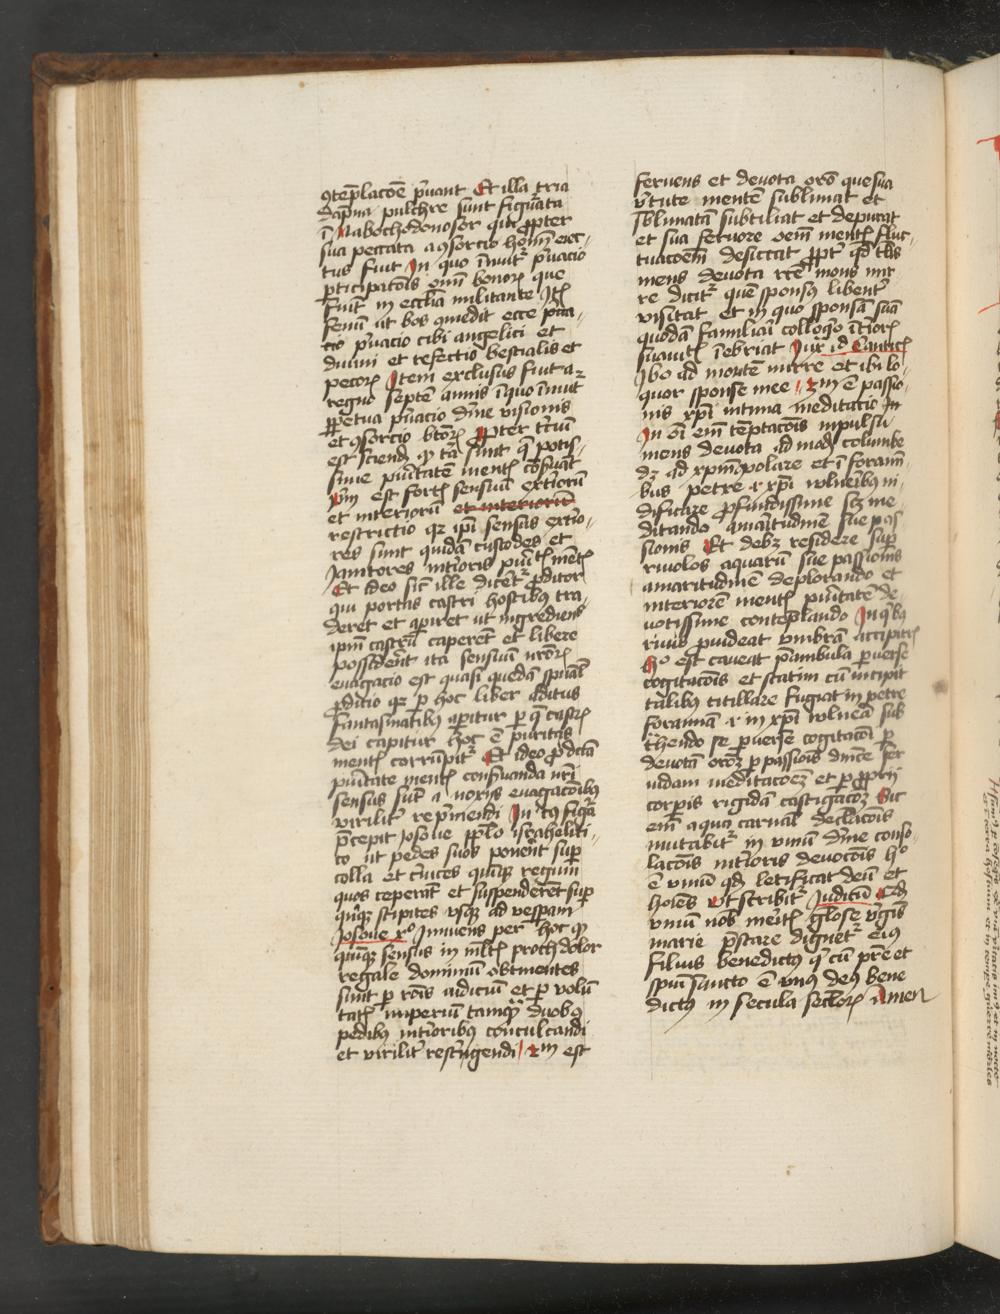 9te͞placōe p͛uant Et illa tria
dāpna pulchre sunt figurata
ī Nabochodonosor qui ꝓpter
sua peccata a 9sorcio hom̄ eiec-
tus fuit In quo inuit͛ p͛uacio
ꝑticipatōis om̄ bonorꝫ que
fiūt in eccl̄ia militante Itē
fenū ut bos 9medit ecce p͛ua-
cio cibi angelici et
diuini et refectio bestialis et
pecorꝫ Item exclusus fuit a
regno septē annis ī quo īnuit
ꝑpetua p͛uacio diīe visionis
et 9sorcio btōrꝫ
est sciendꝫ ꝙ sunt q̄ potis-
sime puritatē ment̄ 9seruāt
est fort̄ sensuū exteriorū
et interiorū et interiorū
restrictio qꝛ ip̄i sensus exterio-
res sunt quidā custodes et
Janitores interioris ment̄
Et ideo sic̄ ille dicet͛ ꝓditor
qui portas castri hostibꝰ tra-
deret et aperiet ut ingredient͛
ip̄m castrū caperēt et libere
possiderēt ita sensuū nr̄orꝫ
euagacio est quasi quedā sp̄ual̄
ꝓditio qꝛ ꝑ hoc liber aditus
fantasmatibꝰ aperitur ꝑ q̄ castrꝫ
dei capitur hoc ē puritas
ment̄ corrūpit͛ Et ideo ꝓ dictā
puritate ment̄ 9seruanda nr̄i
sensus sūt a noxijs euagacōibꝰ
virilit͛ rep͛mendi In cuiꝰ figurā
p̄cepit Josoue pp̄lo israheliti-
co ut pedes suos ponerēt sup̄
colla et ceruices quīqꝫ regum
quos ceperāt et suspenderēt sup̄
quīqꝫ stipites vsqꝫ ad vesperam
Josoue xº Innuens per hoc ꝙ
quīqꝫ sensus in mult̄ proch dolor
regale dominiū obtinentes
sunt ꝑ rōnis iudiciū et ꝑ volū
tatꝫ imperiū tamqͣ duobꝰ
pedibꝰ interioribꝰ conculcandi
et virilit͛ restringendi 2m est
feruens et deuota orō que sua
v͛tute mentē sublimat et
sublimatā subtiliat et depurat
et sua feruore oēm ment̄ fluc-
tuacōem desiccat ꝓpt͛ qd̄ tal̄
mens deuota rc̄e mons mir-
re dicit͛ quē sponsꝰ libent͛
visitat et in quo sponsā suā
quodā familiari colloqͦ
suauit͛ īebriat Iuxᵃ id Canticꝫ
Ibo ad montē mirre et ibi lo-
quor sponse mee 3m ē passio-
nis xp̄i intima meditatio In
In oī em̄ temptacōis impulsu
mens deuota ad modū columbe
dꝫ ad xp̄m auolare et ī foramī-
bus petre i xp̄i vulneribꝰ ni-
dificare ꝓfundissime scꝫ me-
ditando amaritudinē sue pas-
sionis Et debꝫ residere sup̄
riuolos aquarū sue passionis
amaritudinē deplorando et
interiorē ment̄ puritatē de-
uotissime contēplando In qͥbꝰ
riuis ꝓuideat vmbrā accipitrꝫ
hº est caueat p̄ambula ꝑuerse
cogitacōis et statim cū incipit
talibꝰ titillare fugiat in petre
foramīa i in xp̄i vulnera sub
thendo se ꝑuerse cogitacōi ꝑ
deuotā orōꝫ ꝑ passiōis diīce fer
uidam meditacōeꝫ et ꝑ ꝓprij
corꝑis rigidā castigacōꝫ Sic
em̄ aqua carnal̄ delectacōis
mutabit͛ in vinū diīe conso-
lacōis interioris deuocōis hº
ē vinū qd̄ letificat deū et
hoīes vt scribit͛ Judicū Qd̄
vinū nob̄ merit̄ gl̄ose v͛gīs
marie p̄stare dignet͛ eiꝰ
filius benedictꝰ qͥ cū pr̄e et
sp̄u sancto ē vnꝰ deꝰ bene
dictꝰ in secula sec̄lorꝫ Amen